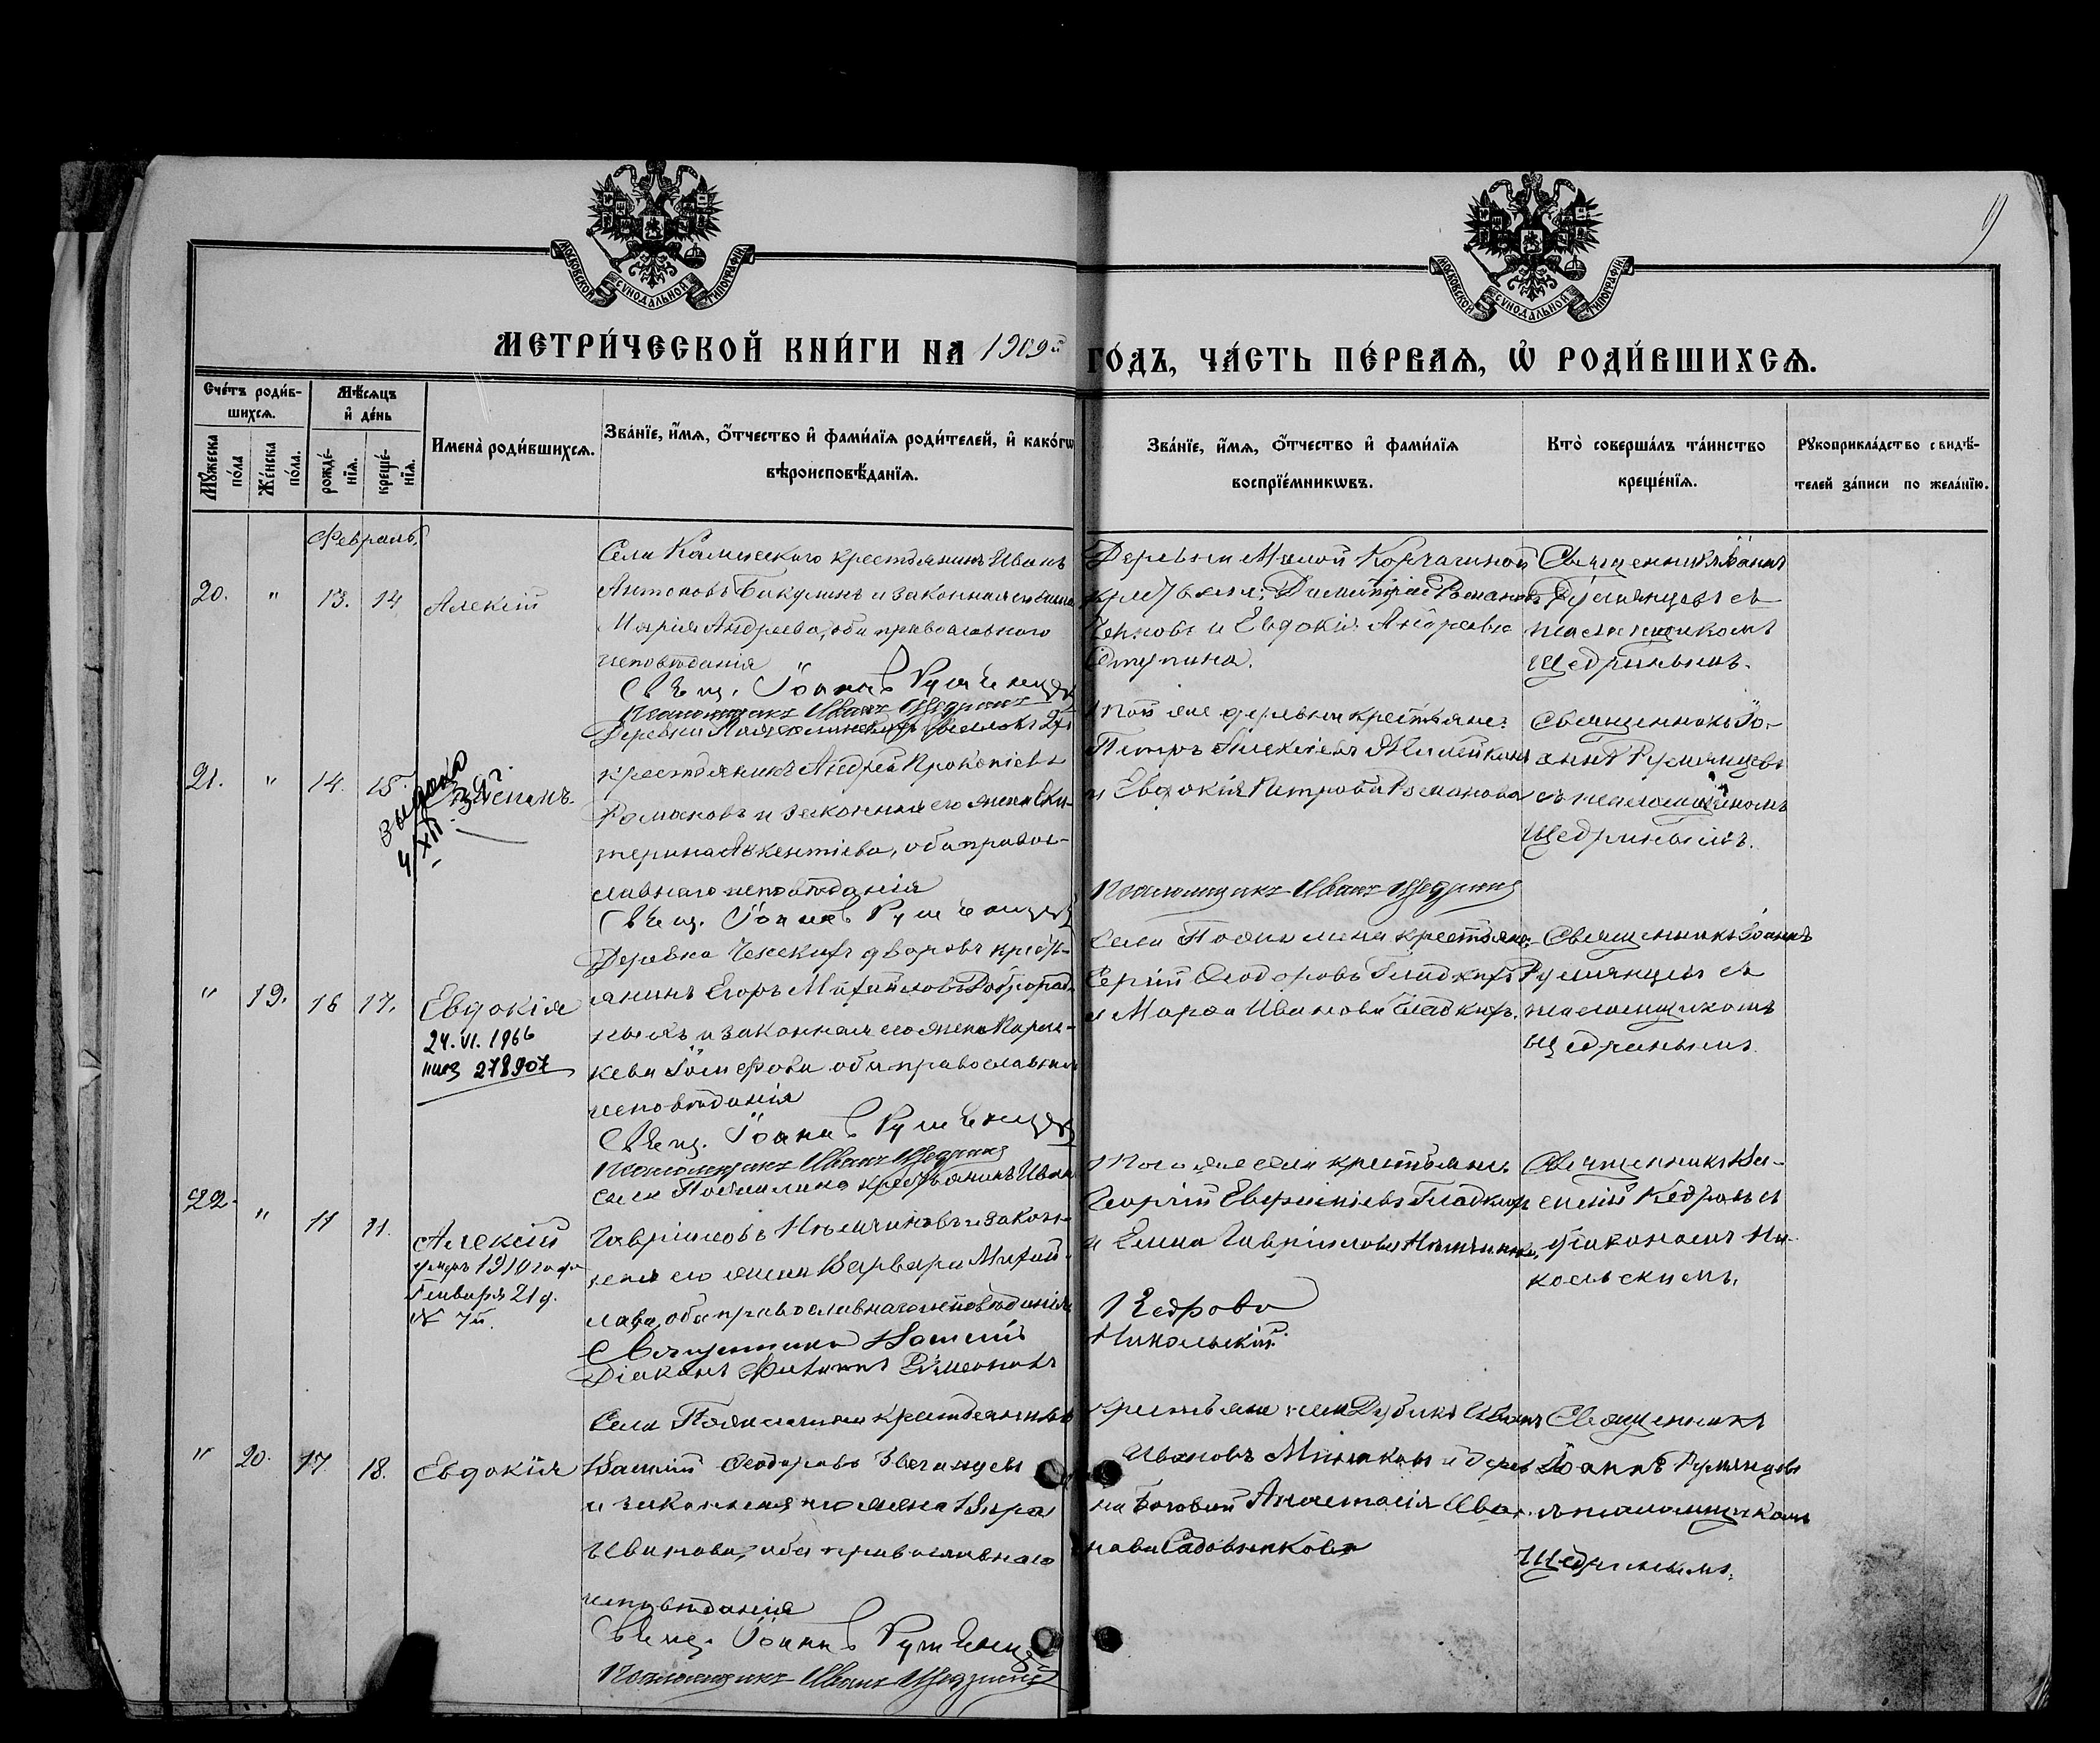 МОСКОВСКОЙ СѴНОДАЛЬНОЙ ТИПОГРАФІИ
МОСКОВСКОЙ СѴНОДАЛЬНОЙ ТИПОГРАФІИ
9
МЕТРИ́ЧЕСКОЙ КНИ́ГИ НА 1909й ГО́ДЪ, ЧА́СТЬ ПЕ́РВАѦ, Ѡ҆ РОДИ́ВШИХСѦ.
Сче́тъ роди́в-
шихсѧ.
Мꙋ́жеска по́ла
Же́нска по́ла.
Мѣ́сѧцъ
и҆ де́нь
рожде́-
нїѧ.
креще́-
нїѧ.
Имена̀ роди́вшихсѧ.
Зва́нїе, и҆́мѧ, ѻ҆́тчество и҆ фами́лїѧ роди́телей, и҆ како́гѡ
вѣроисповѣ́данїѧ.
Зва́нїе, и҆́мѧ, ѻ҆́тчество и҆ фами́лїѧ
воспрїе́мникѡвъ.
Кто̀ соверша́лъ та́инство
креще́нїѧ.
Рꙋкоприкла́дство свидѣ́-
телей за́писи по жела́нїю.
Февраль.
20. " 13. 14. Алексій
Села Каменского крестьянинъ Иванъ
Антоновъ Бикулинъ и законная его жена
Марія Андреева, оба православнаго
исповѣданія
Свящ. Іоаннъ Румянцевъ
Псаломщикъ Иванъ Щедринъ
Деревни Малой Корчагиной
крестьяне: Димитрій Романовъ
и Евдокія Андреева
Ступина.
Священникъ Іоаннъ
Румянцевъ съ
псаломщикомъ
Щедринымъ.
21. " 14. 15. Стефанъ.
выдана
4/XII 39 г.
Деревни
крестьянинъ Андрей Прокопіевъ
Романовъ и законная его жена Ека-
терина Авксентіева, оба правос-
лавнаго исповѣданія
Свящ. Іоаннъ Румянцевъ
Той же деревни крестьяне:
Петръ Алексіевъ
и Евдокія Петрова Романова
Псаломщикъ Иванъ Щедринъ
Священникъ Іо-
аннъ Румянцевъ
съ псаломщикомъ
Щедринымъ.
" 19. 16 17. Евдокія
24.VI.1966
278907
Деревни дворовъ кресть-
янинъ Егоръ Михайловъ
и законная его жена Парас-
кева Іосифова оба православнаго
исповѣданія
Свящ. Іоаннъ Румянцевъ
Псаломщикъ Иванъ Щедринъ
Села крестьяне
Сергій Ѳеодоровъ Гладкихъ
и Марѳа Иванова Гладкихъ.
Священникъ Іоаннъ
Румянцевъ съ
псаломщикомъ
Щедринымъ.
22. " 11 11. Алексій
умеръ 1910 года
Января 21 д.
№ 7й.
села крестьянинъ Иванъ
Гавріиловъ и закон-
ная его жена Варвара Михай-
лова, оба православнаго исповѣданія
Священникъ Василій
Діаконъ
Того же села крестьяне
Георгій Гладкихъ
и Елена Гавріилова
Кедровъ
Никольскій
Священникъ Ва-
силій Кедровъ съ
діакономъ Ни-
кольскимъ.
" 20. 17. 18. Евдокія
Села крестьянинъ
Василій Ѳеодоровъ Звегинцевъ
и законная его жена Вѣра
Иванова, оба православнаго
исповѣданія
Свящ. Іоаннъ Румянцевъ
Псаломщикъ Иванъ Щедринъ
крестьяне села Иванъ
Ивановъ и дерев-
ни Анастасія Ива-
нова Садовникова
Священникъ
Іоаннъ Румянцевъ
съ псаломщикомъ
Щедринымъ.